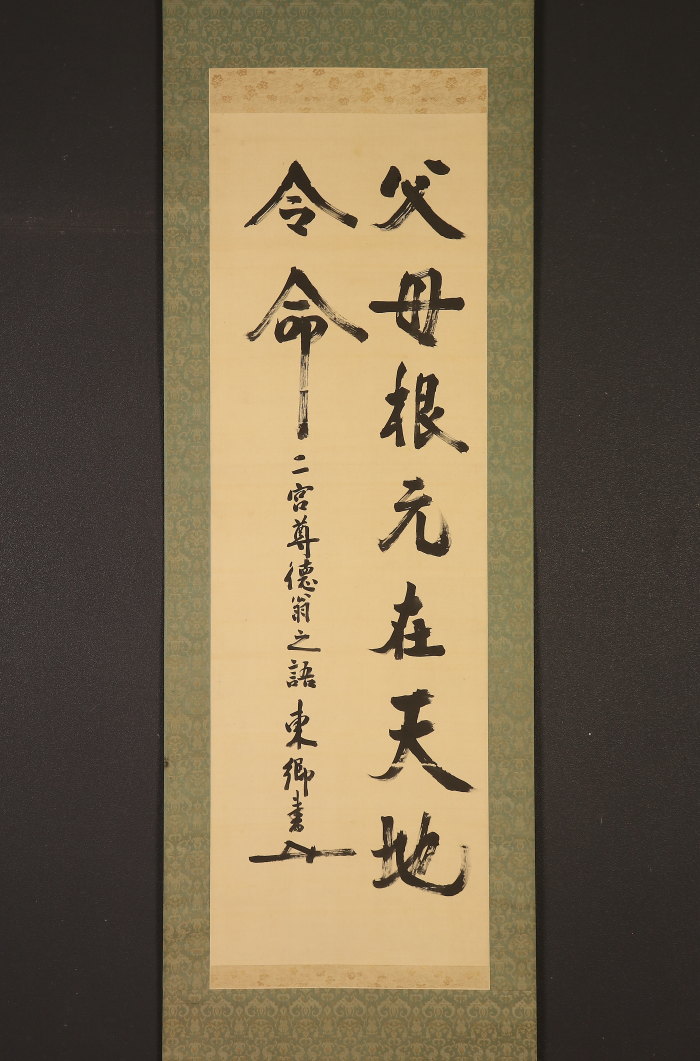 父母根元在天地
令命二宮尊德翁之語 東鄉書